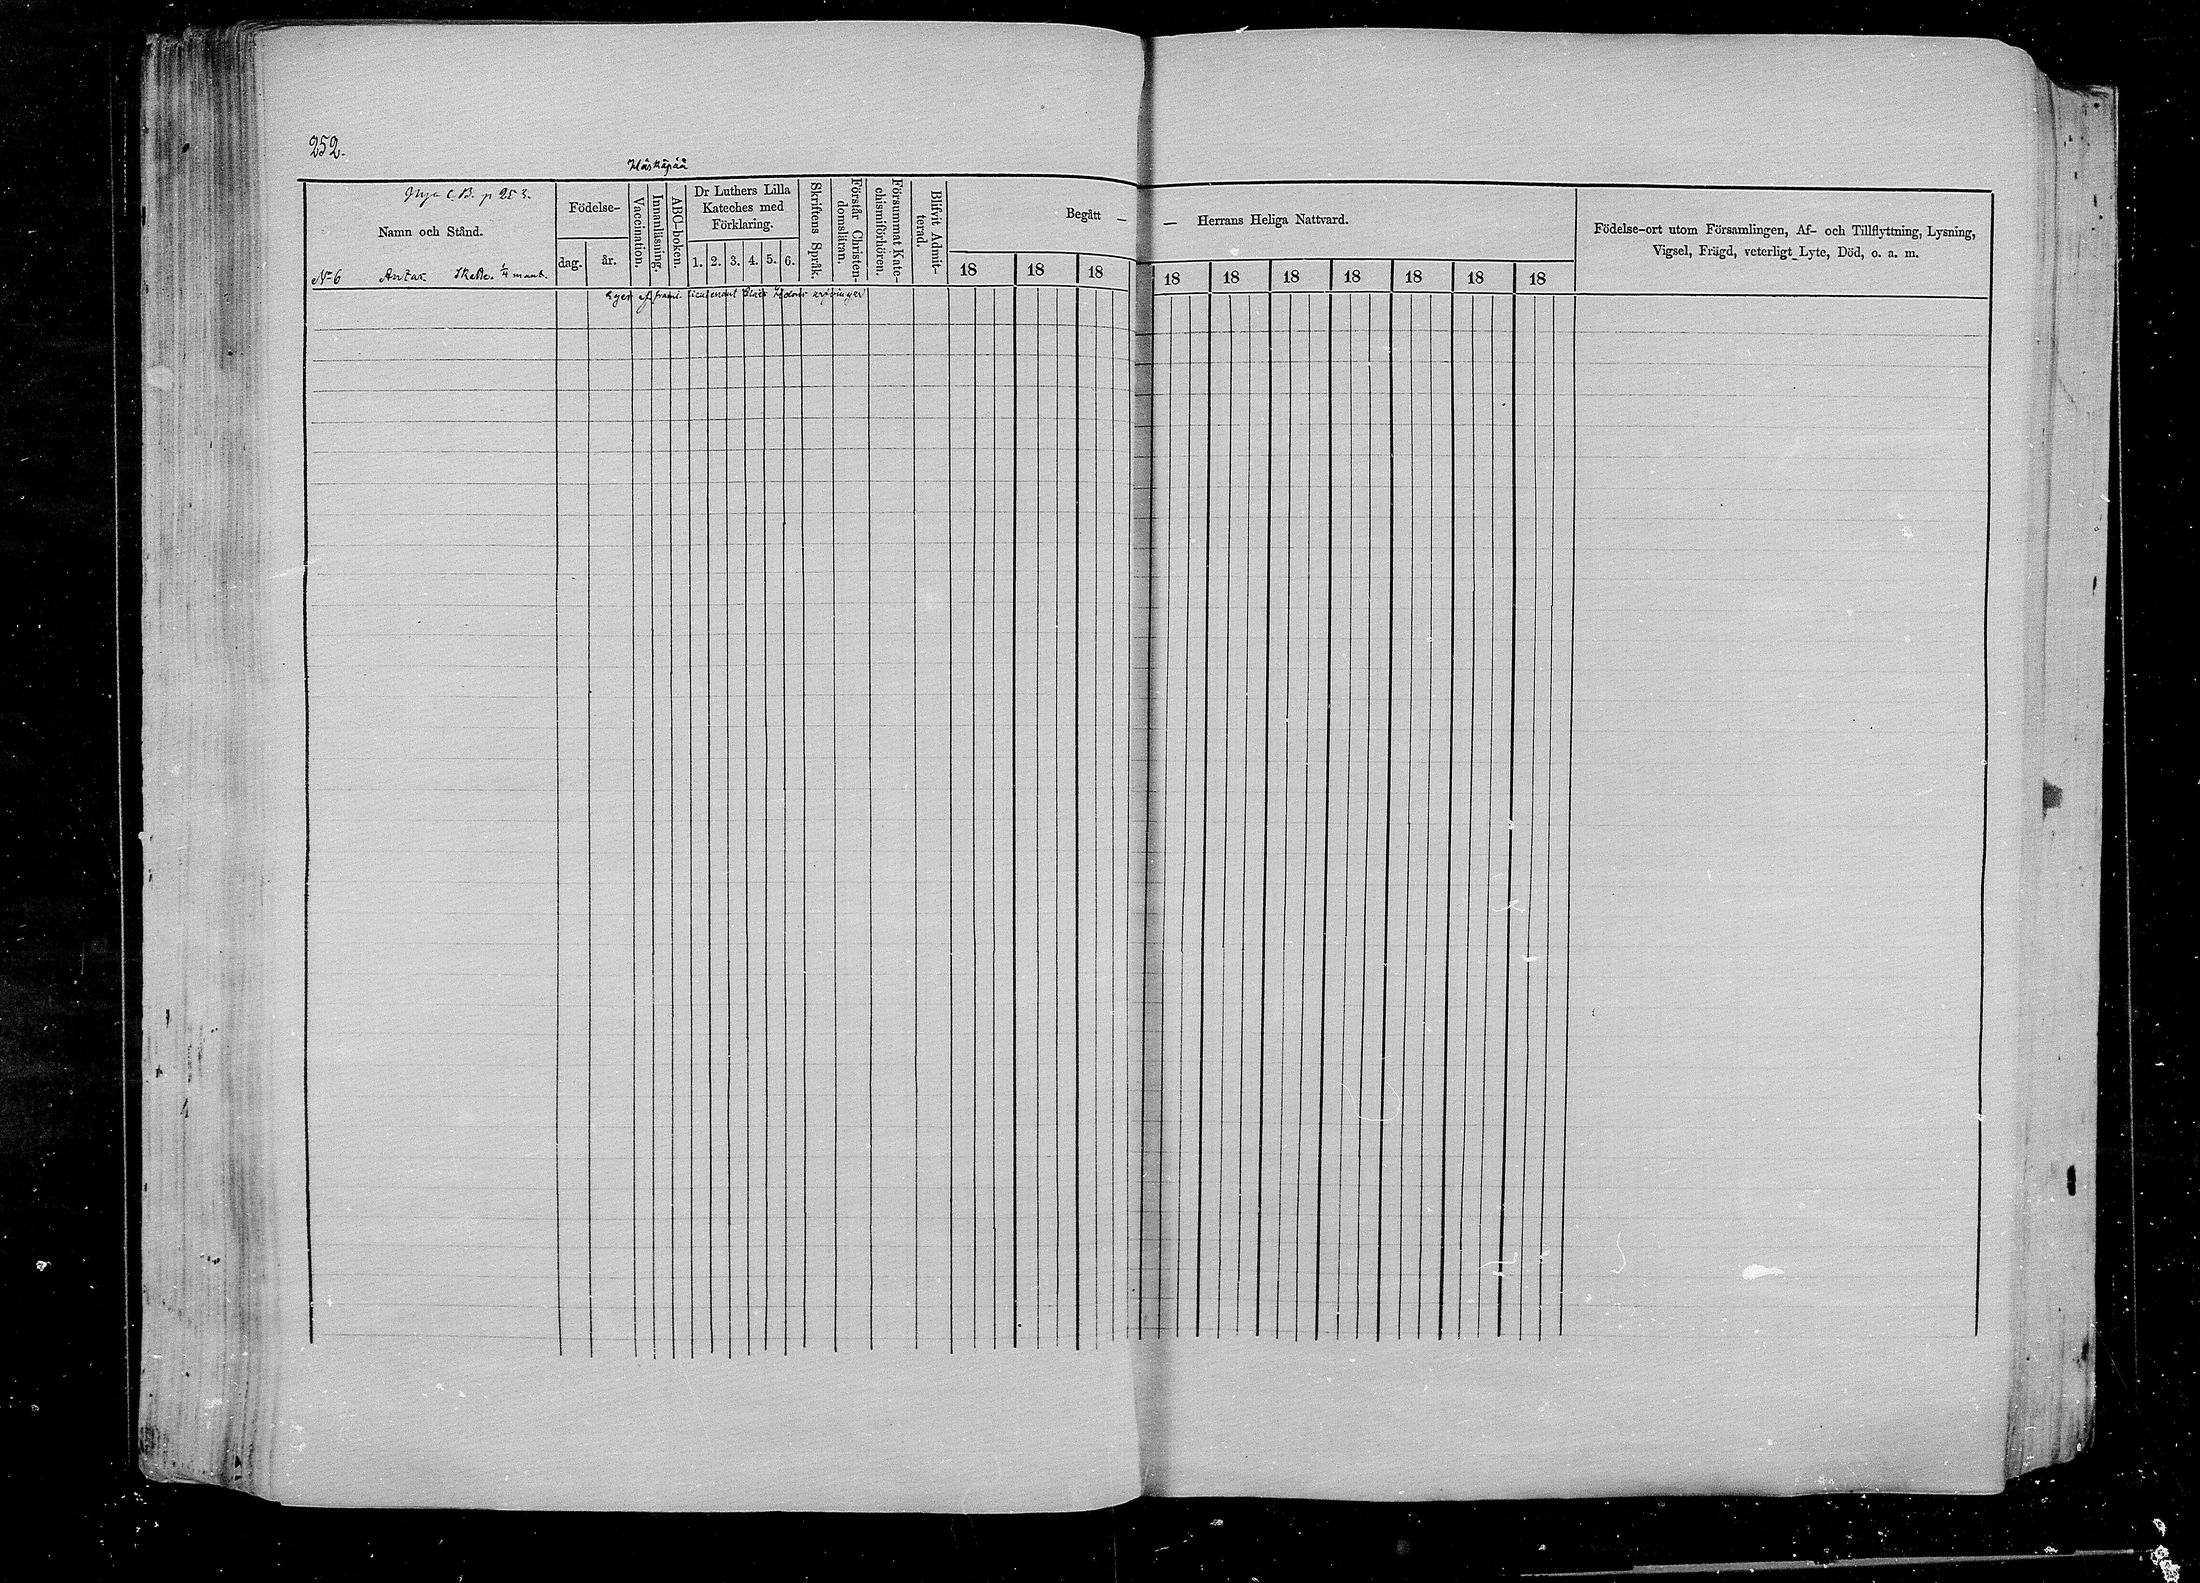 252.
Häskäpää
Nya C.B. p 253.
Namn och Stånd.
N:o 6 Antax Skatte. 1/4 mant.
Födelse-
dag.
år.
Vaccination.
Innanläsning.
ABC-boken.
Dr Luthers Lilla
Kateches med
Förklaring.
1. 2. 3. 4. 5. 6.
Skriftens Språk.
Förstår Christen-
domsläran.
Försummat Kate-
chismiförhören.
Blifvit Admit-
terad.
Begått — — Herrans Heliga Nattvard.
18 18 18 18 18 18 18 18 18 18
Födelse-ort utom Församlingen, Af- och Tillflyttning, Lysning,
Vigsel, Frägd, veterligt Lyte, Död, o. a. m.
Eges af framl. lieutenant arfvingar